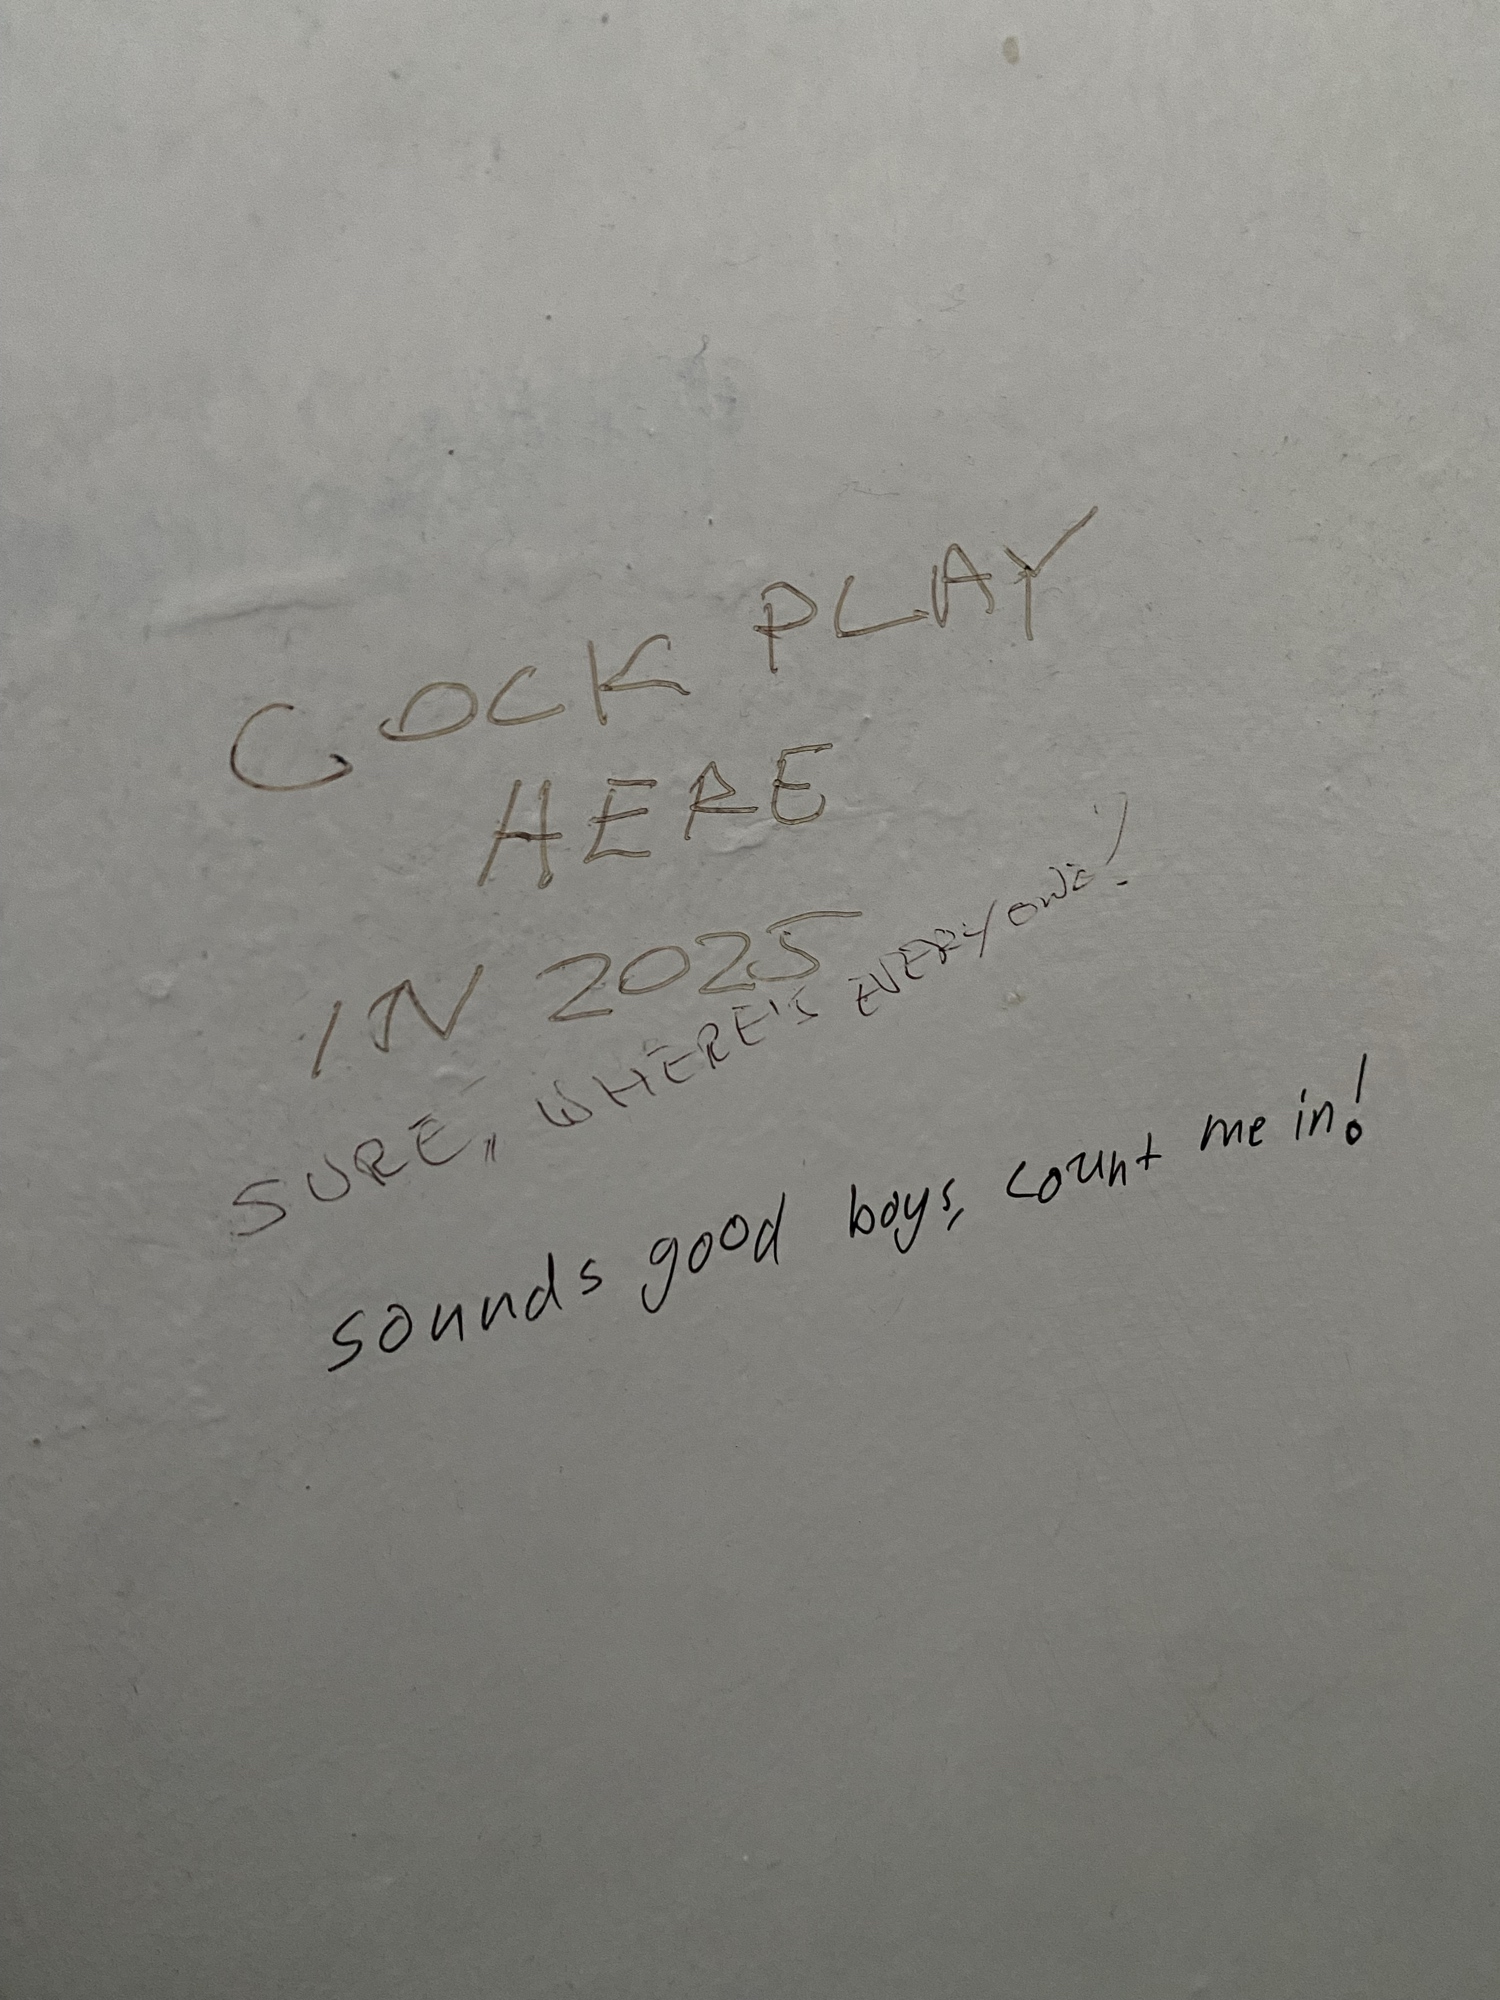 COCK PLAY
HERE
IN 2025
SURE, WHERE'S EVERYONE!
sounds good boys, count me in!